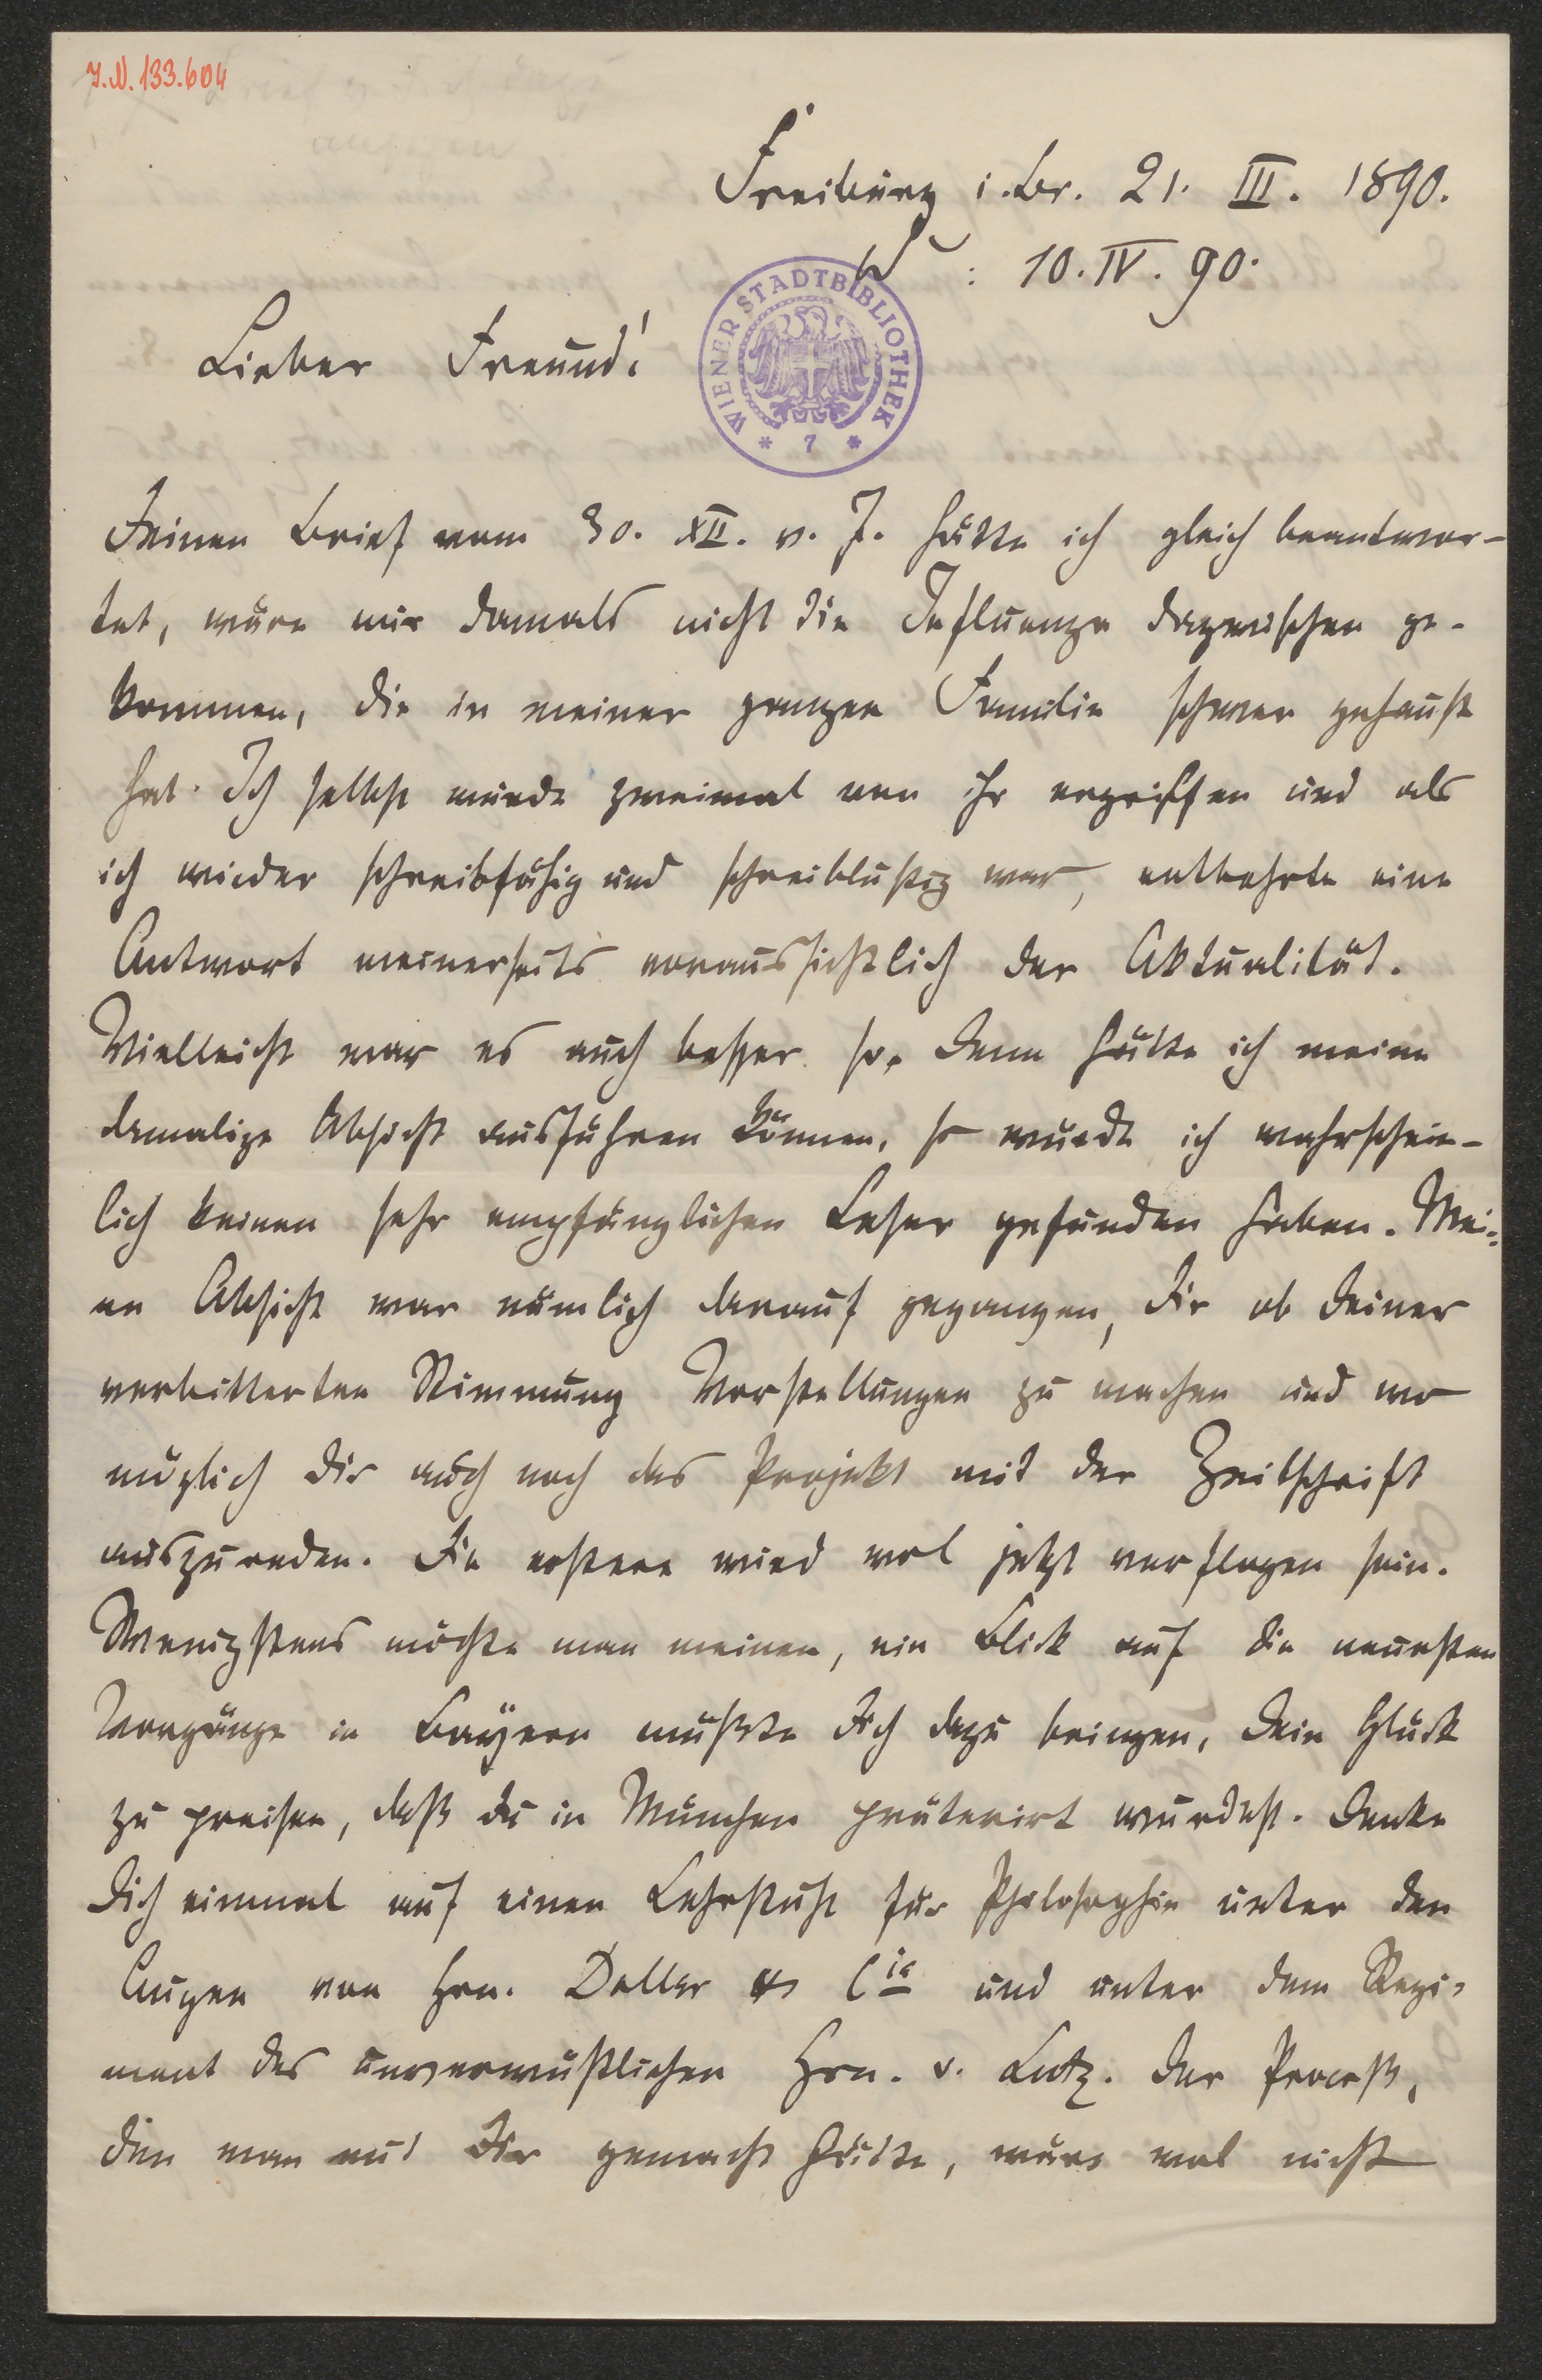 I.N. 133.604
Freiburg i. Br. 21. III. 1890.
: 10. IV. 90.
WIENER STADTBIBLIOTHEK
* 7 *
Lieber Freund!
Deinen Brief vom 30. XII. v. J. hätte ich gleich beantwor-
tet, wäre mir damals nicht die Influenza dazwischen ge-
kommen, die in meiner ganzen Familie schwer gehaust
hat. Ich selbst wurde zweimal von ihr ergriffen und als
ich wieder schreibfähig und schreiblustig war, entbehrte eine
Antwort meinerseits voraussichtlich der Aktualität.
Vielleicht war es auch besser so. Denn hätte ich meine
damalige Absicht ausführen können, so würde ich wahrschein-
lich keinen sehr empfänglichen Leser gefunden haben. Mei-
ne Absicht war nämlich darauf gegangen, Dir ob Deiner
verbitterten Stimmung Vorstellungen zu machen und wo
möglich Dir auch noch das Projekt mit der Zeitschrift
auszureden. Die erstere wird wol jetzt verflogen sein.
Wenigstens möchte man meinen, ein Blick auf die neuesten
Vorgänge in Bayern müßte Dich dazu bringen, Dein Glück
zu preisen, daß du in München präterirt wurdest. Denke
Dich einmal auf einen Lehrstuhl für Philosophie unter den
Augen von Hrn. Daller & Cie und unter dem Regi-
ment des unverwüstlichen Hrn. v. Lutz. Der Proceß,
den man mit Dir gemacht hätte, wäre wol nicht